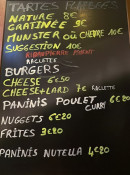 TARTES FLAMBÉES
NATURE 8€
GRATINÉE 9€
MUNSTER OU CHÈVRE 10€
SUGGESTION 10€
RACLETTE
BURGERS
CHEESE 6€50
CHEESE+LARD 7€ RACLETTE
PANINIS POULET
CURRY 6€80
NUGGETS 6€20
FRITES 3€80
PANINIS NUTELLA 4€80